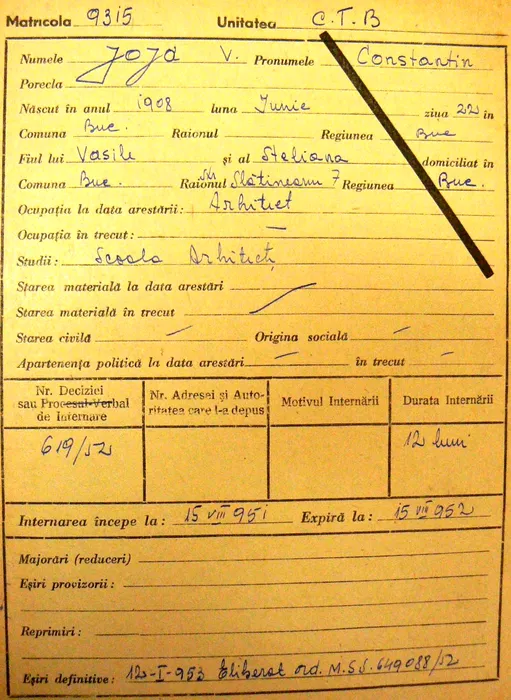 Matricola 9315 Unitatea C.T.B
Numele Joja V. Pronumele Constantin
Porecla
Născut în anul 1908 luna Iunie ziua 22 în
Comuna Buc. Raionul Regiunea Buc
Fiul lui Vasile și al Steliana domiciliat în
Comuna Buc. Raionul Str Slătineanu 7 Regiunea Buc.
Ocupația la data arestării: Arhitect
Ocupația în trecut: —
Studii: Scoala Arhitect
Starea materială la data arestări
Starea materială în trecut
Starea civilă — Origina socială —
Apartenența politică la data arestări — în trecut —
Nr. Deciziei sau Procesul-Verbal de Internare
Nr. Adresei și Autoritatea care l-a depus
Motivul Internării
Durata Internării
619/52 12 luni
Internarea începe la: 15 VIII 951 Expiră la: 15 VIII 952
Majorări (reduceri)
Eșiri provizorii:
Reprimiri:
Eșiri definitive: 12-I-953 Eliberat ord. M.S.S. 649088/52